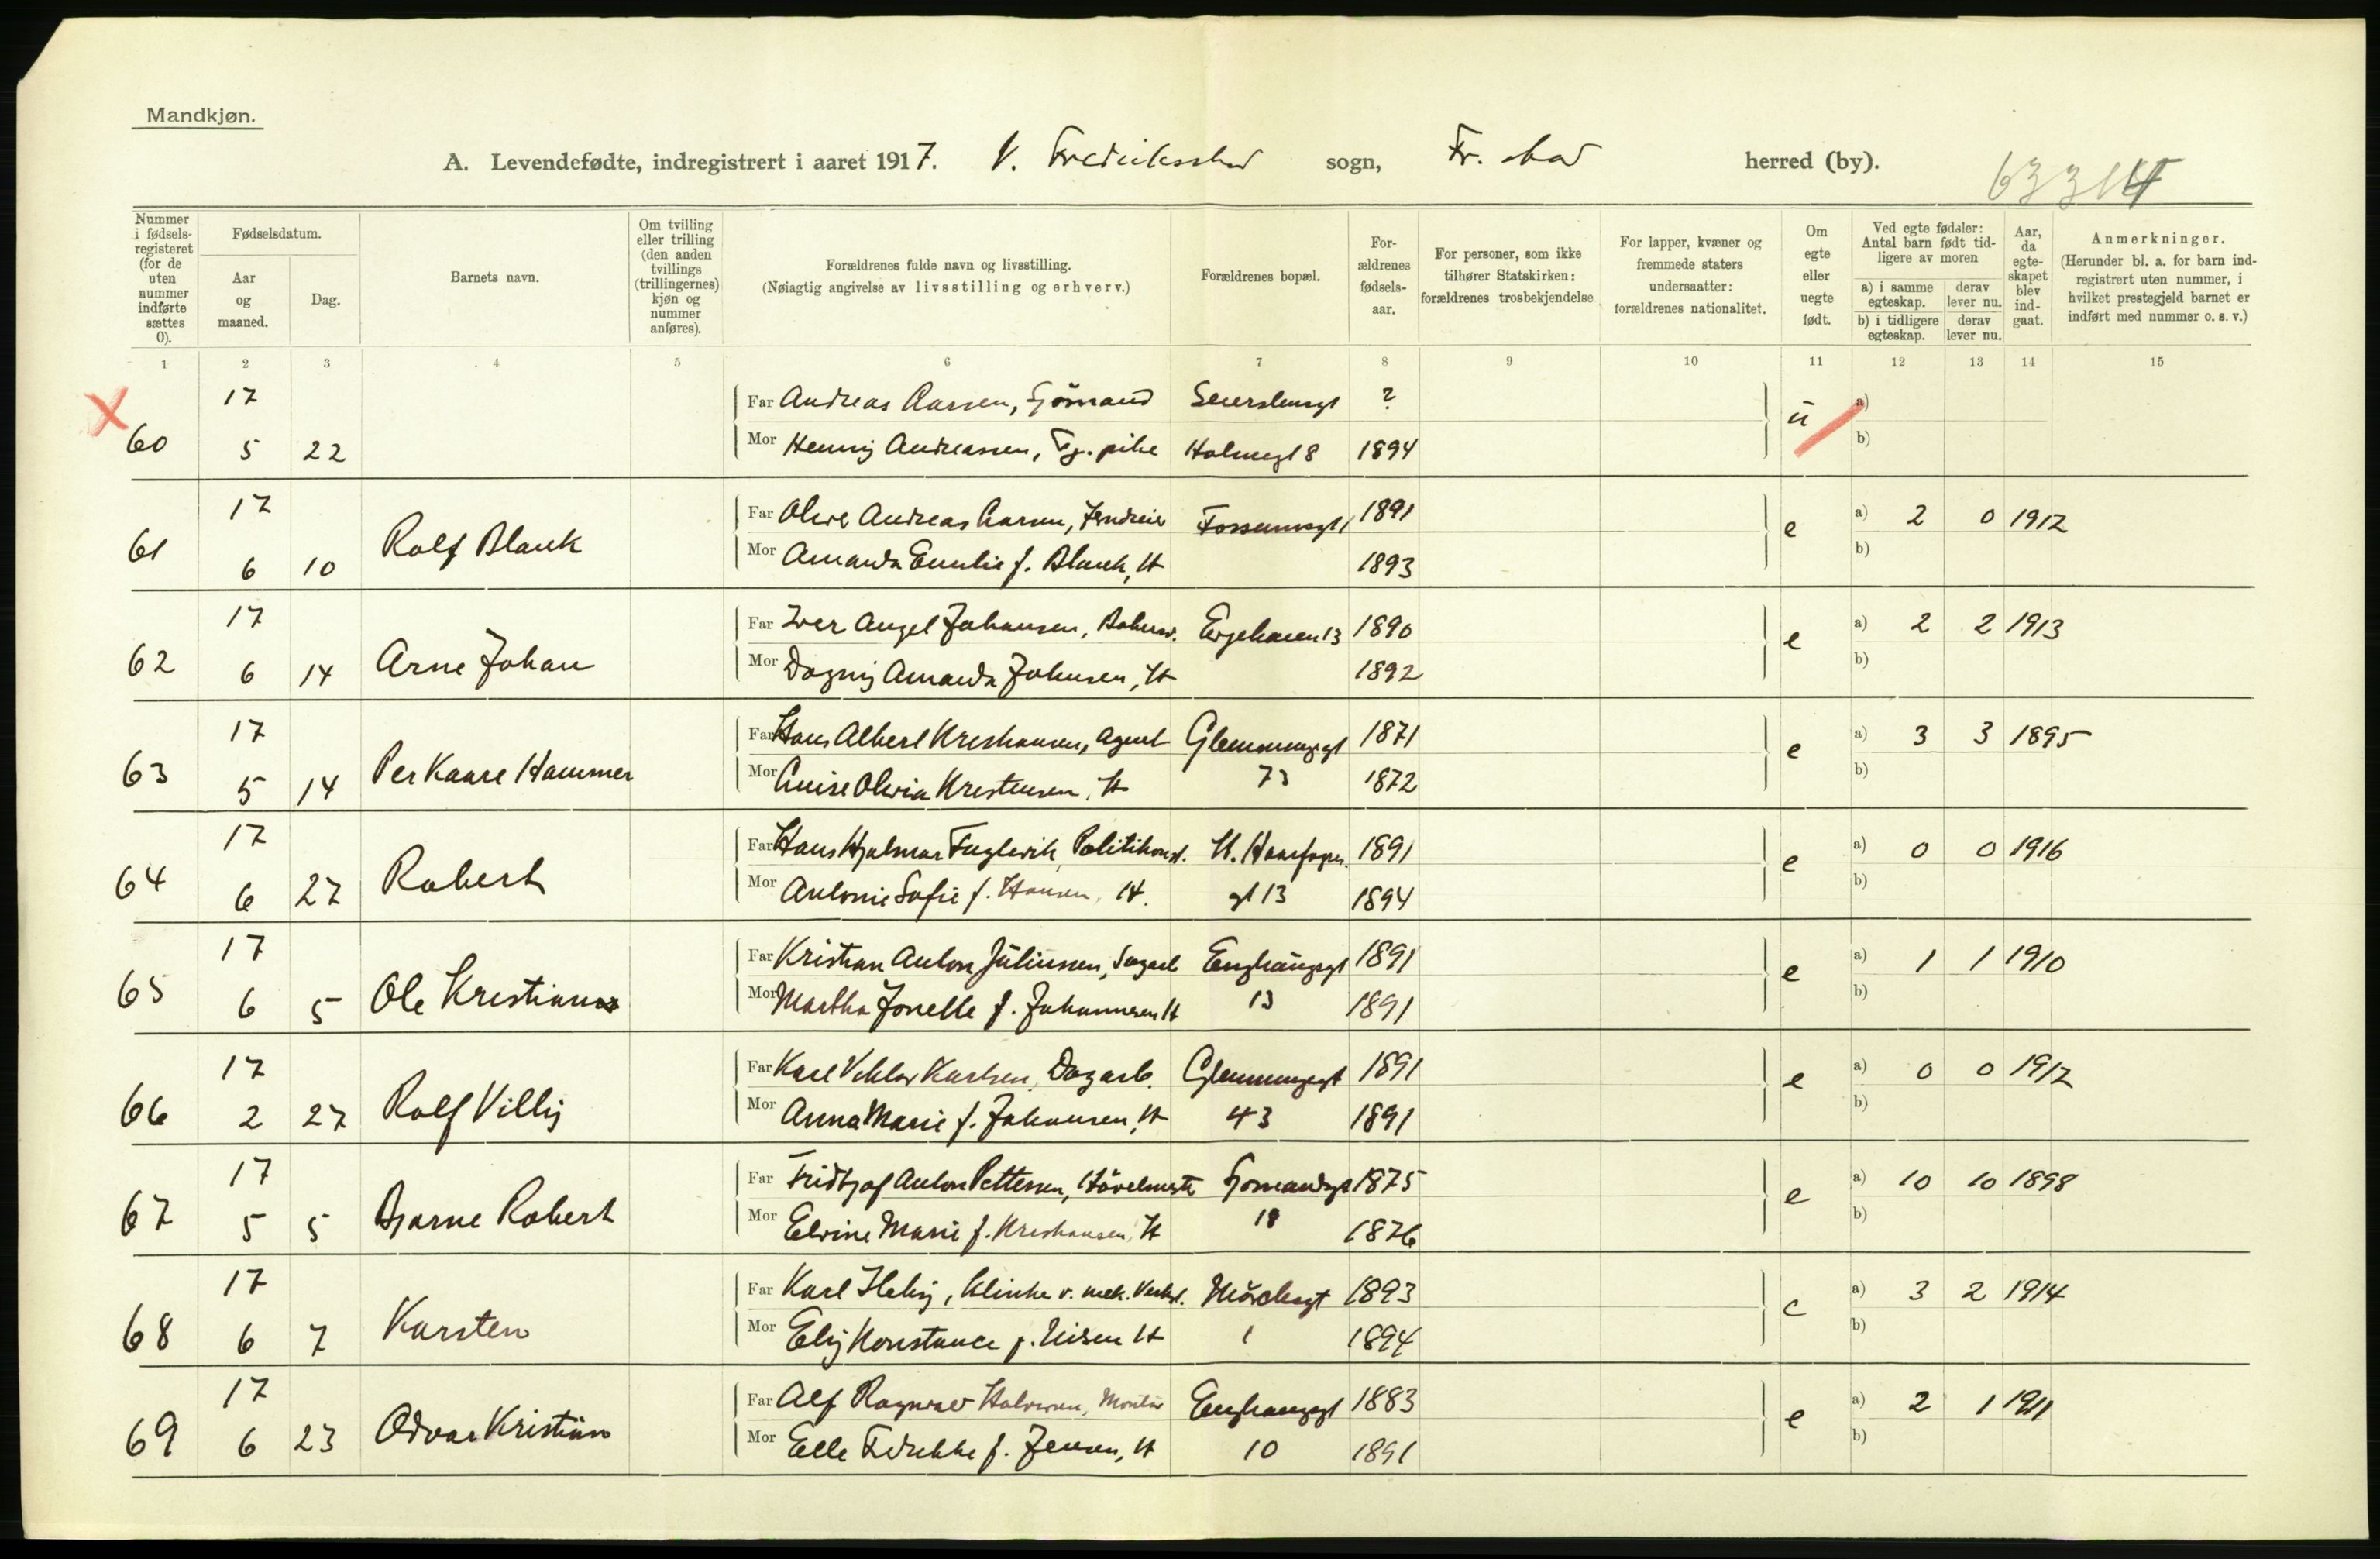 Mandkjøn.
A. Levendefødte, indregistrert i aaret 1917. V. Fredriksstad sogn, Fr. stad herred (by).
Nummer i fødsels-registeret (for de uten nummer indførte sættes 0).
Fødselsdatum.
Aar og maaned.
Dag.
Barnets navn.
Om tvilling eller trilling (den anden tvillings (trillingernes) kjøn og nummer anføres).
Forældrenes fulde navn og livsstilling.
(Nøiagtig angivelse av livsstilling og erhverv.)
Forældrenes bopæl.
For-ældrenes fødsels-aar.
For personer, som ikke tilhører Statskirken: forældrenes trosbekjendelse
For lapper, kvæner og fremmede staters undersaatter: forældrenes nationalitet.
Om egte eller uegte født.
Ved egte fødsler: Antal barn født tid-ligere av moren
a) i samme egteskap. derav lever nu.
b) i tidligere egteskap. derav lever nu.
Aar, da egte-skapet blev ind-gaat.
Anmerkninger.
(Herunder bl. a. for barn ind-registrert uten nummer, i hvilket prestegjeld barnet er indført med nummer o. s. v.)
1 2 3 4 5 6 7 8 9 10 11 12 13 14 15
17 Far Andreas Aassen, Sjömand ? u a)
60 5 22 Mor Henny Andreassen, Tj. pike Holmegt 8 1894 b)
17 Far Andreas 1891 e a) 2 0 1912
61 6 10 Rolf Blanck Mor Amanda Emilie f. Blanck, H 1893 b)
17 Far Iver Angel Johansen, 13 1890 e a) 2 2 1913
62 6 14 Arne Johan Mor Dagny Amanda Johnsen, H 1892 b)
17 Far Hans Albert Kristiansen, Agent Glemmengt 1871 e a) 3 3 1895
63 5 14 Per Kaare Hammer Mor Olivia Kristensen, H 73 1872 b)
17 Far Hans Hjalmar Fuglevik, Politikonst. H. Haarfagres 1891 e a) 0 0 1916
64 6 27 Robert Mor Antonie Sofie f. Hansen, H. gt 13 1894 b)
17 Far Kristian Anton Juliussen, Enghaugsgt 1891 e a) 1 1 1910
65 6 5 Ole Kristian Mor Martha Jonette f. Johannesen H 13 1891 b)
17 Far Karl Viktor Karlsen, Dagarb. Glemmengt 1891 e a) 0 0 1912
66 2 27 Rolf Villy Mor Anna Marie f. Johansen, H 43 1891 b)
17 Far Fridtjof Anton Pettersen, Hövelmester Sjömandsgt 1875 e a) 10 10 1898
67 5 5 Bjarne Robert Mor Elvine Marie f. Kristiansen, H 18 1876 b)
17 Far Karl v. mek. Verkst. 1893 e a) 3 2 1914
68 6 7 Karsten Mor Elly Konstance f. H 1 1894 b)
17 Far Alf Ragnvald Halvorsen, Montör Enghaugsgt 1883 e a) 2 1 1911
69 6 23 Odvar Kristian Mor Elle f. Jensen, H 10 1891 b)